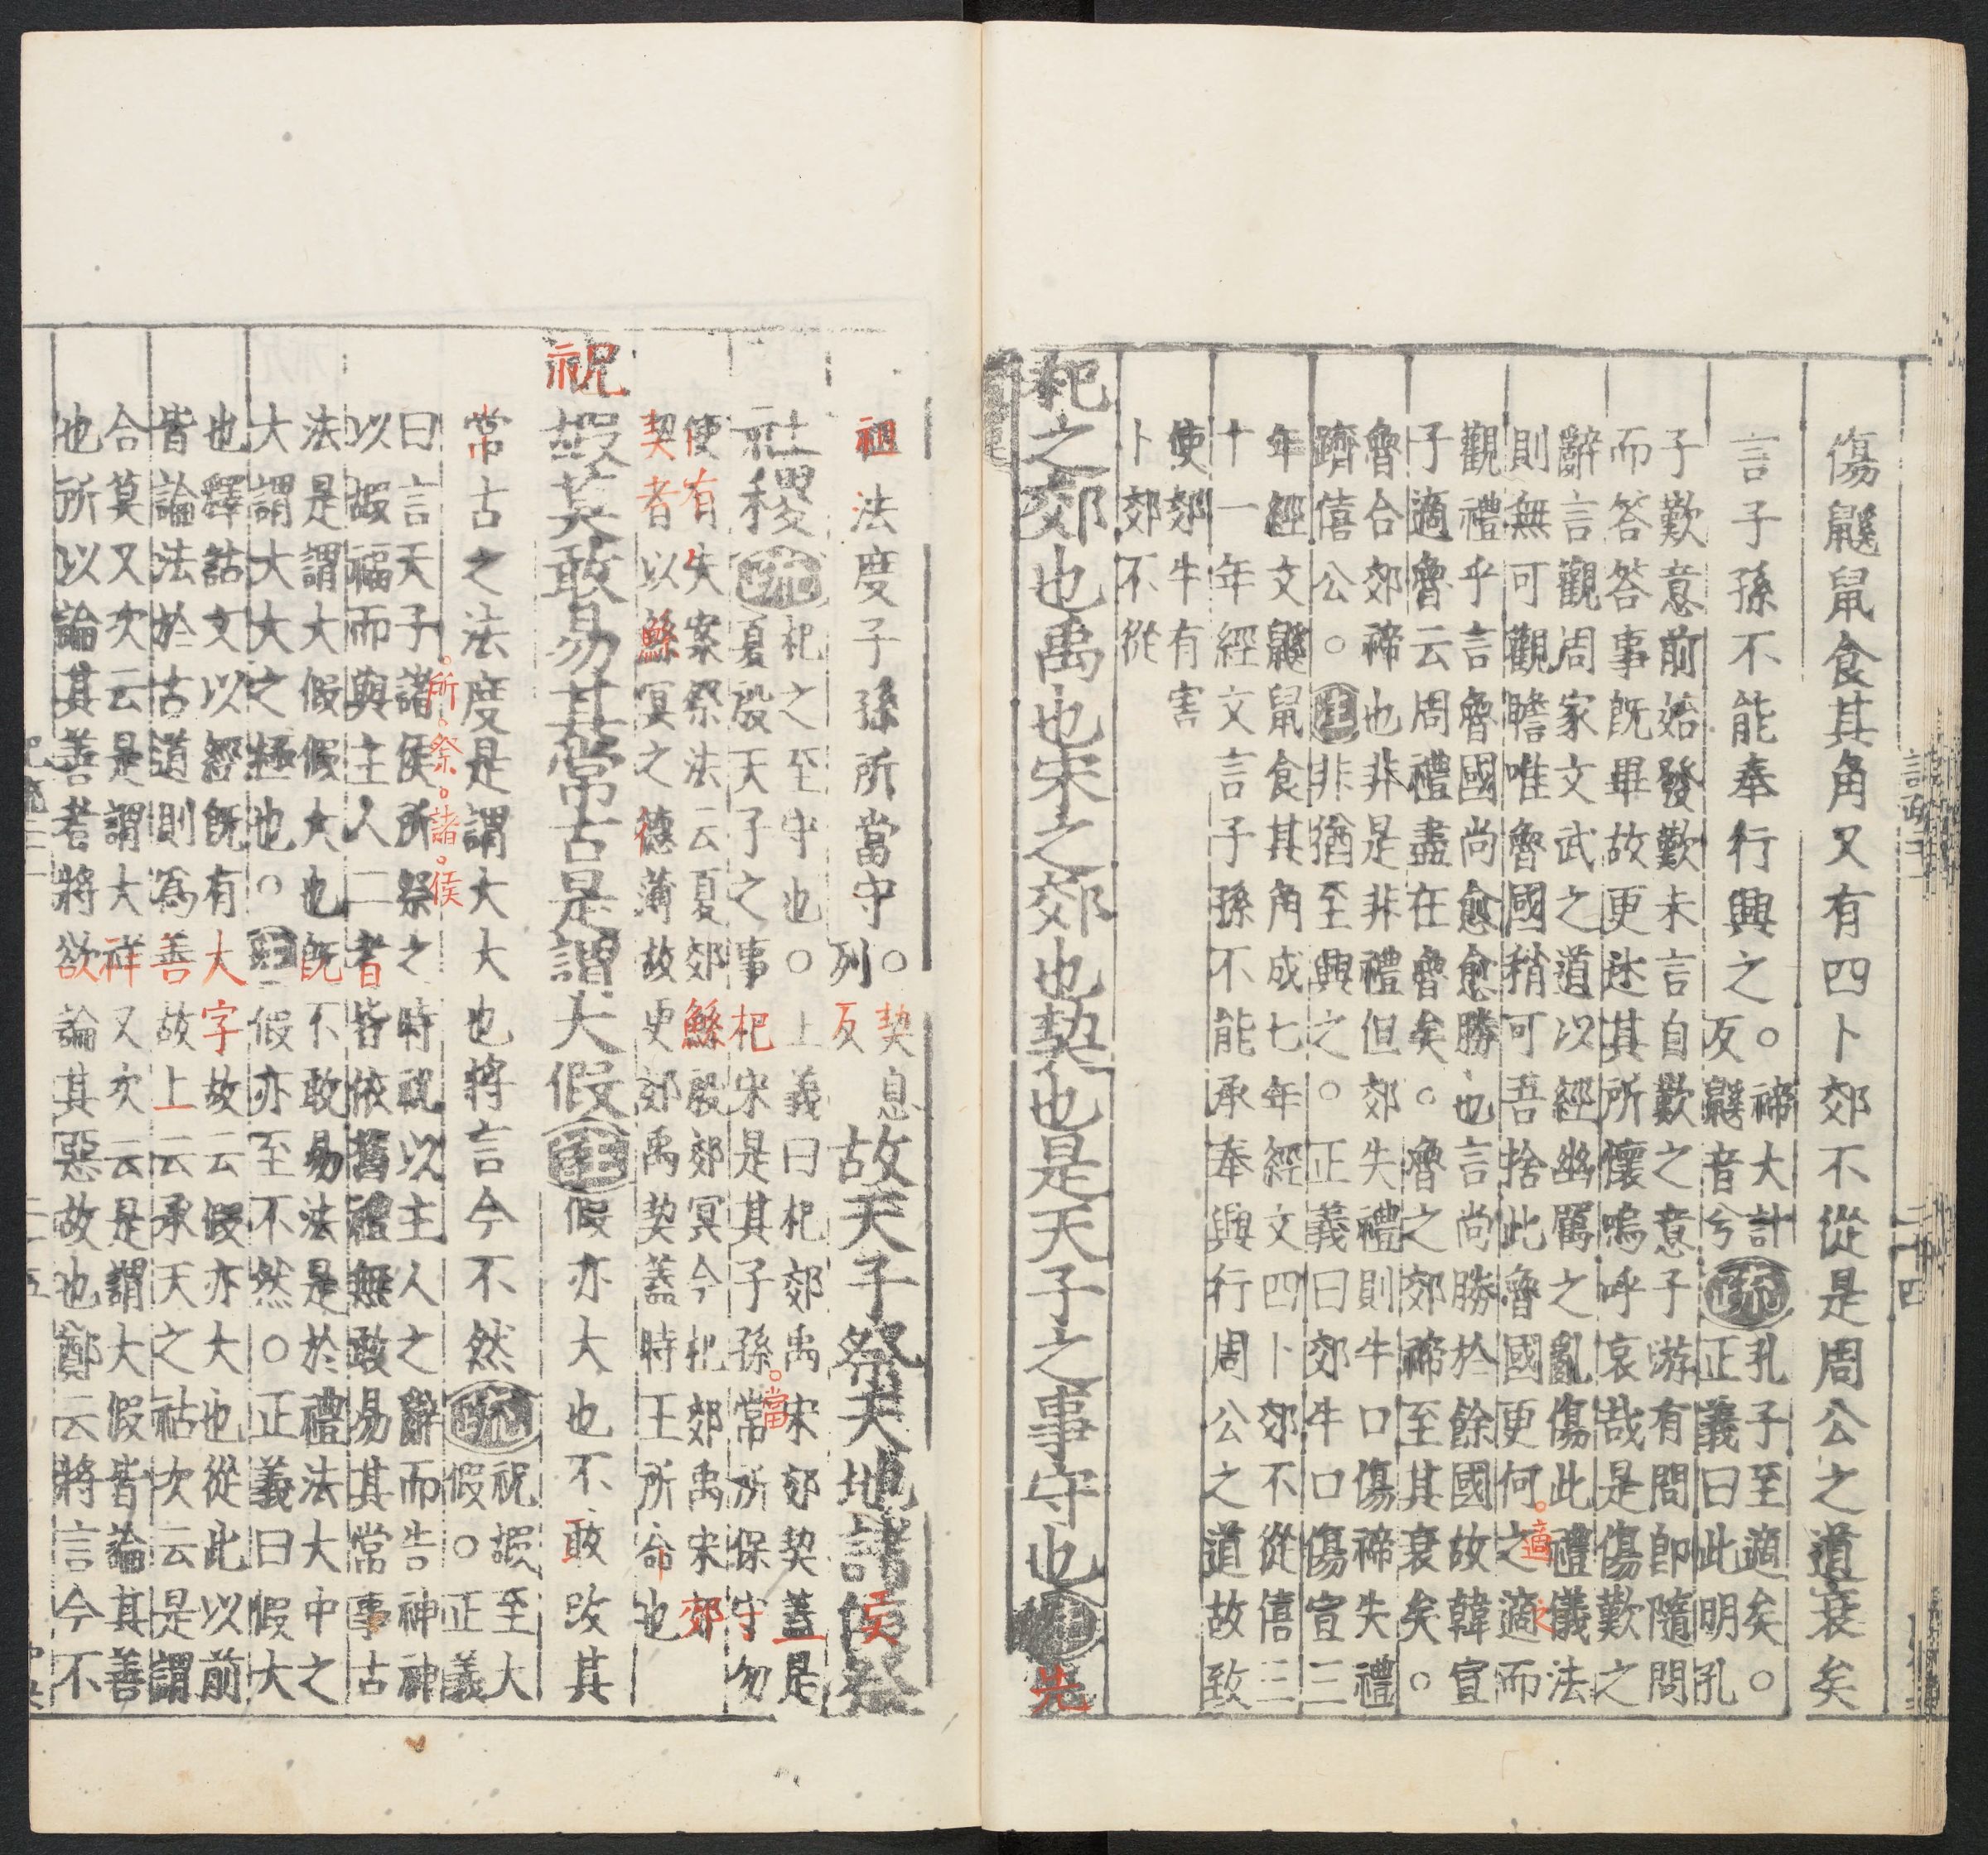 傷鼷鼠食其角又有四卜郊不從是周公之道衰矣
言子孫不能奉行興之。禘大計
反鼷音兮疏孔子至適矣。
正義曰此明孔
子歎意前始發歎未言自歎之意子游有問即隨問
而答答事既畢故更述其所懷嗚呼哀哉是傷歎之
辭言觀周家文武之道以經幽厲之亂傷此禮儀法
則無可觀瞻唯魯國稍可吾捨此魯國更何之適而
適之
觀禮乎言魯國尚愈愈勝也言尚勝於餘國故韓宣
子適魯云周禮盡在魯矣。魯之郊禘至其衰矣。
魯合郊禘也非是非禮但郊失禮則牛口傷禘失禮
躋僖公。注非猶至興之。正義曰郊牛口傷宣三
年經文鼷鼠食其角成七年經文四卜郊不從僖三
十一年經文言子孫不能承奉興行周公之道故致
使郊牛有害
卜郊不從
杞之郊也禹也宋之郊也契也是天子之事守也注先
祖法度子孫所當守○契息
列反故天子祭天地諸侯祭
社稷疏杞之至守也○正義曰杞郊禹宋郊契蓋是
夏殷天子之事杞宋是其子孫常所保守勿
當
使有失案祭法云夏郊鯀殷郊冥今杞郊禹宋郊
契者以鯀冥之德薄故更郊禹契蓋時王所命也
祝嘏莫敢易其常古是謂大假注假亦大也不敢改其
常古之法度是謂大大也將言今不然疏祝嘏至大
假○正義
曰言天子諸侯所祭之時祝以主人之辭而告神神
所祭諸侯
以嘏福而與主人二者皆依舊禮無敢易其常事古
法是謂大假假大也既不敢易法是於禮法大中之
大謂大大之極也○注假亦至不然○正義曰假大
也釋詁文以經既有大字故云假亦大也從此以前
皆論法於古道則為善故上云承天之祜次云是謂
合莫又次云是謂大祥又次云是謂大假皆論其善
也所以論其善者將欲論其惡故也鄭云將言今不